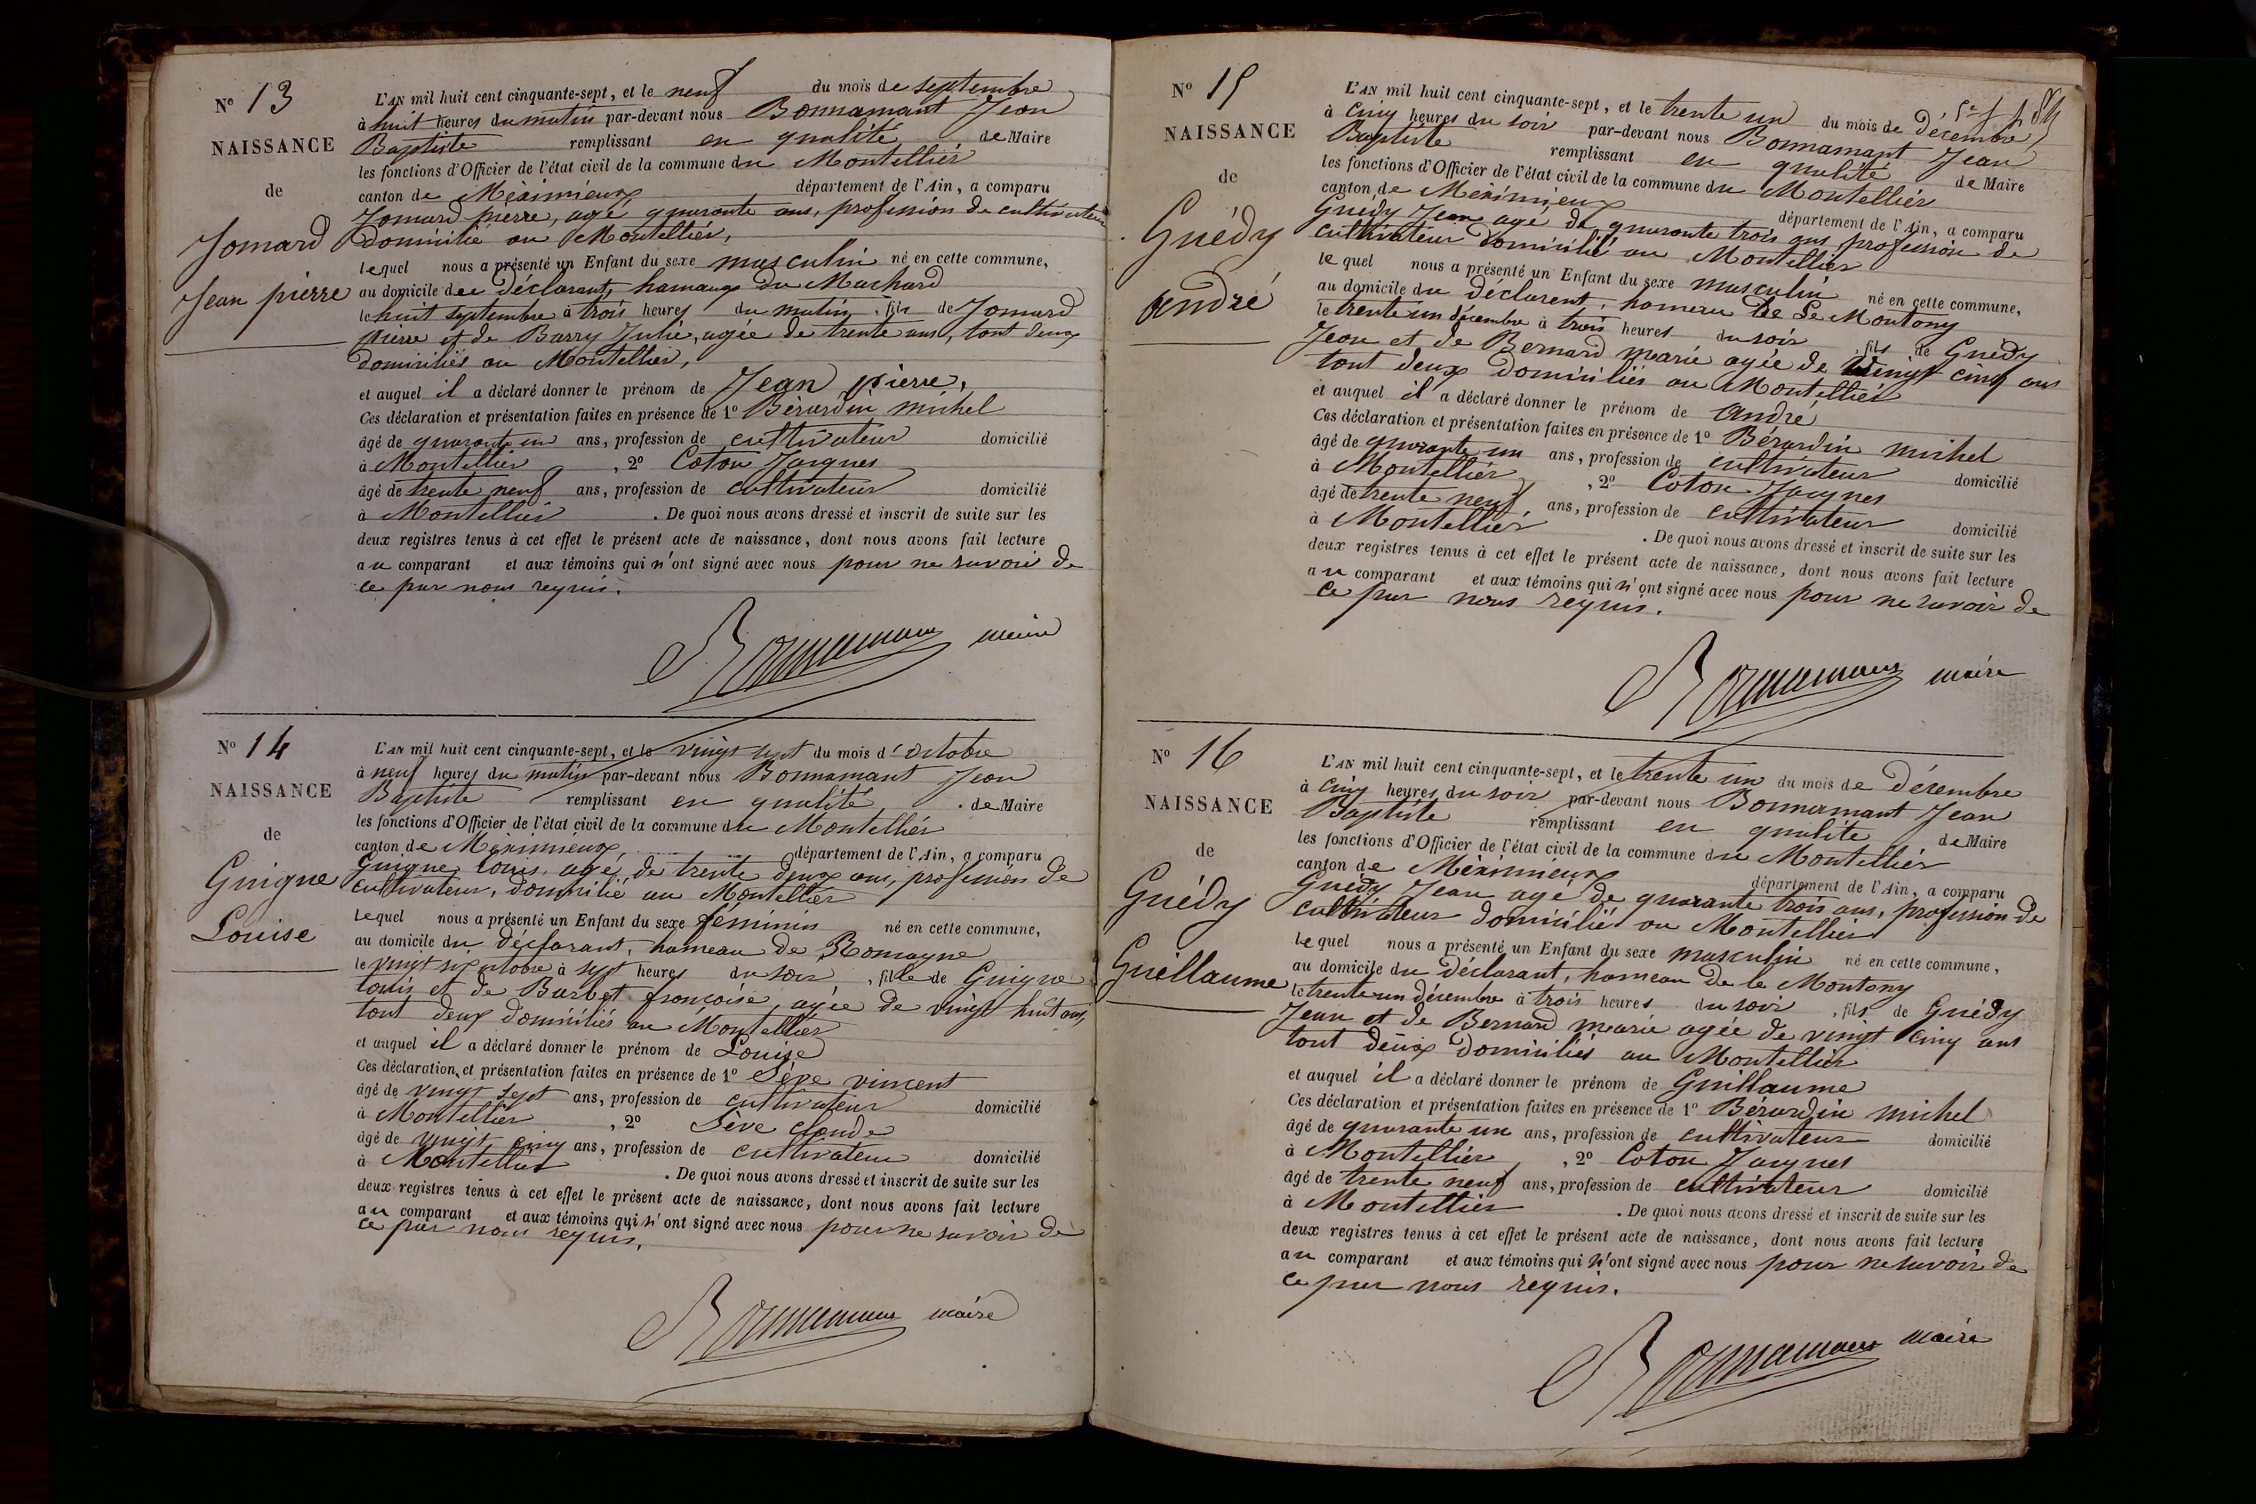 Nº 13
NAISSANCE
de
Jomard
Jean pierre
L'AN mil huit cent cinquante-sept, et le neuf du mois de septembre
à huit heures du matin par-devant nous Bonnamant Jean
Baptiste remplissant en qualité de Maire
les fonctions d'Officier de l'état civil de la commune du Montellier
canton de Méximieux département de l'Ain, a comparu
Jomard pierre, agé quarante ans, profession de cultivateur
domicilié au Montellier,
lequel nous a présenté un Enfant du sexe masculin né en cette commune,
au domicile du déclarant, hamaux du Machard
le huit septembre à trois heures du matin, fils de Jomard
pierre et de Barry Julie, agée de trente ans, tout deux
domiciliés au Montellier,
et auquel il a déclaré donner le prénom de Jean pierre,
Ces déclaration et présentation faites en présence de 1º Bérardin michel
âgé de quarante un ans, profession de cultivateur domicilié
à Montellier, 2º Coton Jacques
âgé de trente neuf ans, profession de cultivateur domicilié
à Montellier. De quoi nous avons dressé et inscrit de suite sur les
deux registres tenus à cet effet le présent acte de naissance, dont nous avons fait lecture
au comparant et aux témoins qui n'ont signé avec nous pour ne savoir de
ce par nous requis.
Bonnamant maire
Nº 14
NAISSANCE
de
Guigue
Louise
L'AN mil huit cent cinquante-sept, et le vingt sept du mois d'octobre
à neuf heures du matin par-devant nous Bonnamant Jean
Baptiste remplissant en qualité de Maire
les fonctions d'Officier de l'état civil de la commune du Montellier
canton de Méximieux département de l'Ain, a comparu
Guigue Louis, agé de trente deux ans, profession de
cultivateur, domicilié au Montellier
lequel nous a présenté un Enfant du sexe féminin né en cette commune,
au domicile du déclarant, hameau de Romagne
le vingt six octobre à sept heures du soir, fille de Guigue
Louis et de Barbet françoise, agée de vingt huit ans,
tout deux domiciliés au Montellier
et auquel il a déclaré donner le prénom de Louise
Ces déclaration et présentation faites en présence de 1º Séve vincent
âgé de vingt sept ans, profession de cultivateur domicilié
à Montellier, 2º Séve claude
âgé de vingt cinq ans, profession de cultivateur domicilié
à Montellier. De quoi nous avons dressé et inscrit de suite sur les
deux registres tenus à cet effet le présent acte de naissance, dont nous avons fait lecture
au comparant et aux témoins qui n'ont signé avec nous pour ne savoir de
ce par nous requis.
Bonnamant maire
Nº 15
NAISSANCE
de
Guédy
André
L'AN mil huit cent cinquante-sept, et le trente un du mois de décembre,
à cinq heures du soir par-devant nous Bonnamant Jean
Baptiste remplissant en qualité de Maire
les fonctions d'Officier de l'état civil de la commune du Montellier
canton de Méximieux département de l'Ain, a comparu
Guédy Jean agé de quarante trois ans profession de
cultivateur domicilié au Montellier
lequel nous a présenté un Enfant du sexe masculin né en cette commune,
au domicile du déclarent, homeau de Le Montony
le trente un décembre à trois heures du soir, fils de Guédy
Jean et de Bernard marie agée de vingt cinq ans
tout deux domiciliés au Montellier
et auquel il a déclaré donner le prénom de André
Ces déclaration et présentation faites en présence de 1º Bérardin michel
âgé de quarante un ans, profession de cultivateur domicilié
à Montellier, 2º Coton Jacques
âgé de trente neuf ans, profession de cultivateur domicilié
à Montellier. De quoi nous avons dressé et inscrit de suite sur les
deux registres tenus à cet effet le présent acte de naissance, dont nous avons fait lecture
au comparant et aux témoins qui n'ont signé avec nous pour ne savoir de
ce par nous requis.
Bonnamant maire
Nº 16
NAISSANCE
de
Guédy
Guillaume
L'AN mil huit cent cinquante-sept, et le trente un du mois de décembre
à cinq heures du soir par-devant nous Bonnamant Jean
Baptiste remplissant en qualité de Maire
les fonctions d'Officier de l'état civil de la commune du Montellier
canton de Méximieux département de l'Ain, a comparu
Guédy Jean agé de quarante trois ans, profession de
cultivateur domicilié au Montellier
lequel nous a présenté un Enfant du sexe masculin né en cette commune,
au domicile du déclarant, hameau de le Montony
le trente un décembre à trois heures du soir, fils de Guédy
Jean et de Bernard marie agée de vingt cinq ans
tout deux domiciliés au Montellier
et auquel il a déclaré donner le prénom de Guillaume
Ces déclaration et présentation faites en présence de 1º Bérardin michel
âgé de quarante un ans, profession de cultivateur domicilié
à Montellier, 2º Coton Jacques
âgé de trente neuf ans, profession de cultivateur domicilié
à Montellier. De quoi nous avons dressé et inscrit de suite sur les
deux registres tenus à cet effet le présent acte de naissance, dont nous avons fait lecture
au comparant et aux témoins qui n'ont signé avec nous pour ne savoir de
ce par nous requis.
Bonnamant maire